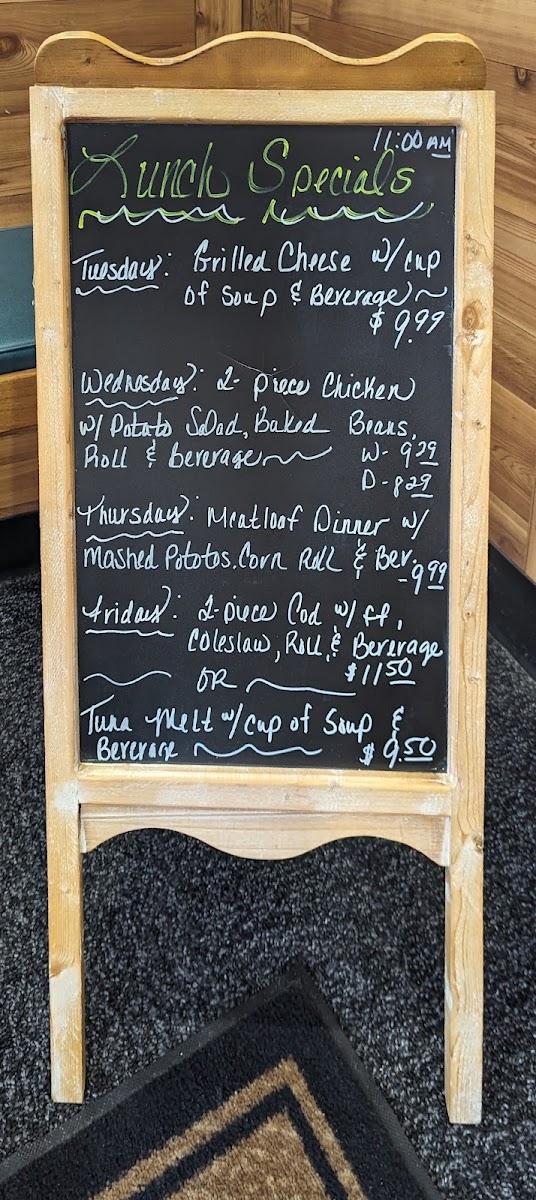 11:00 AM
Lunch Specials
Tuesday: Grilled Cheese w/ cup
of Soup & Beverage ~
$9.99
Wednesday: 2- piece Chicken
w/ Potato Salad, Baked Beans,
Roll & beverage
W- 9.29
D- 8.29
Thursday: Meatloaf Dinner w/
Mashed Pototos, Corn Roll & Bev.
- 9.99
Friday: 2-piece Cod w/ ff,
Coleslaw, Roll, & Beverage
$11.50
OR
Tuna Melt w/ cup of Soup &
Beverage $9.50